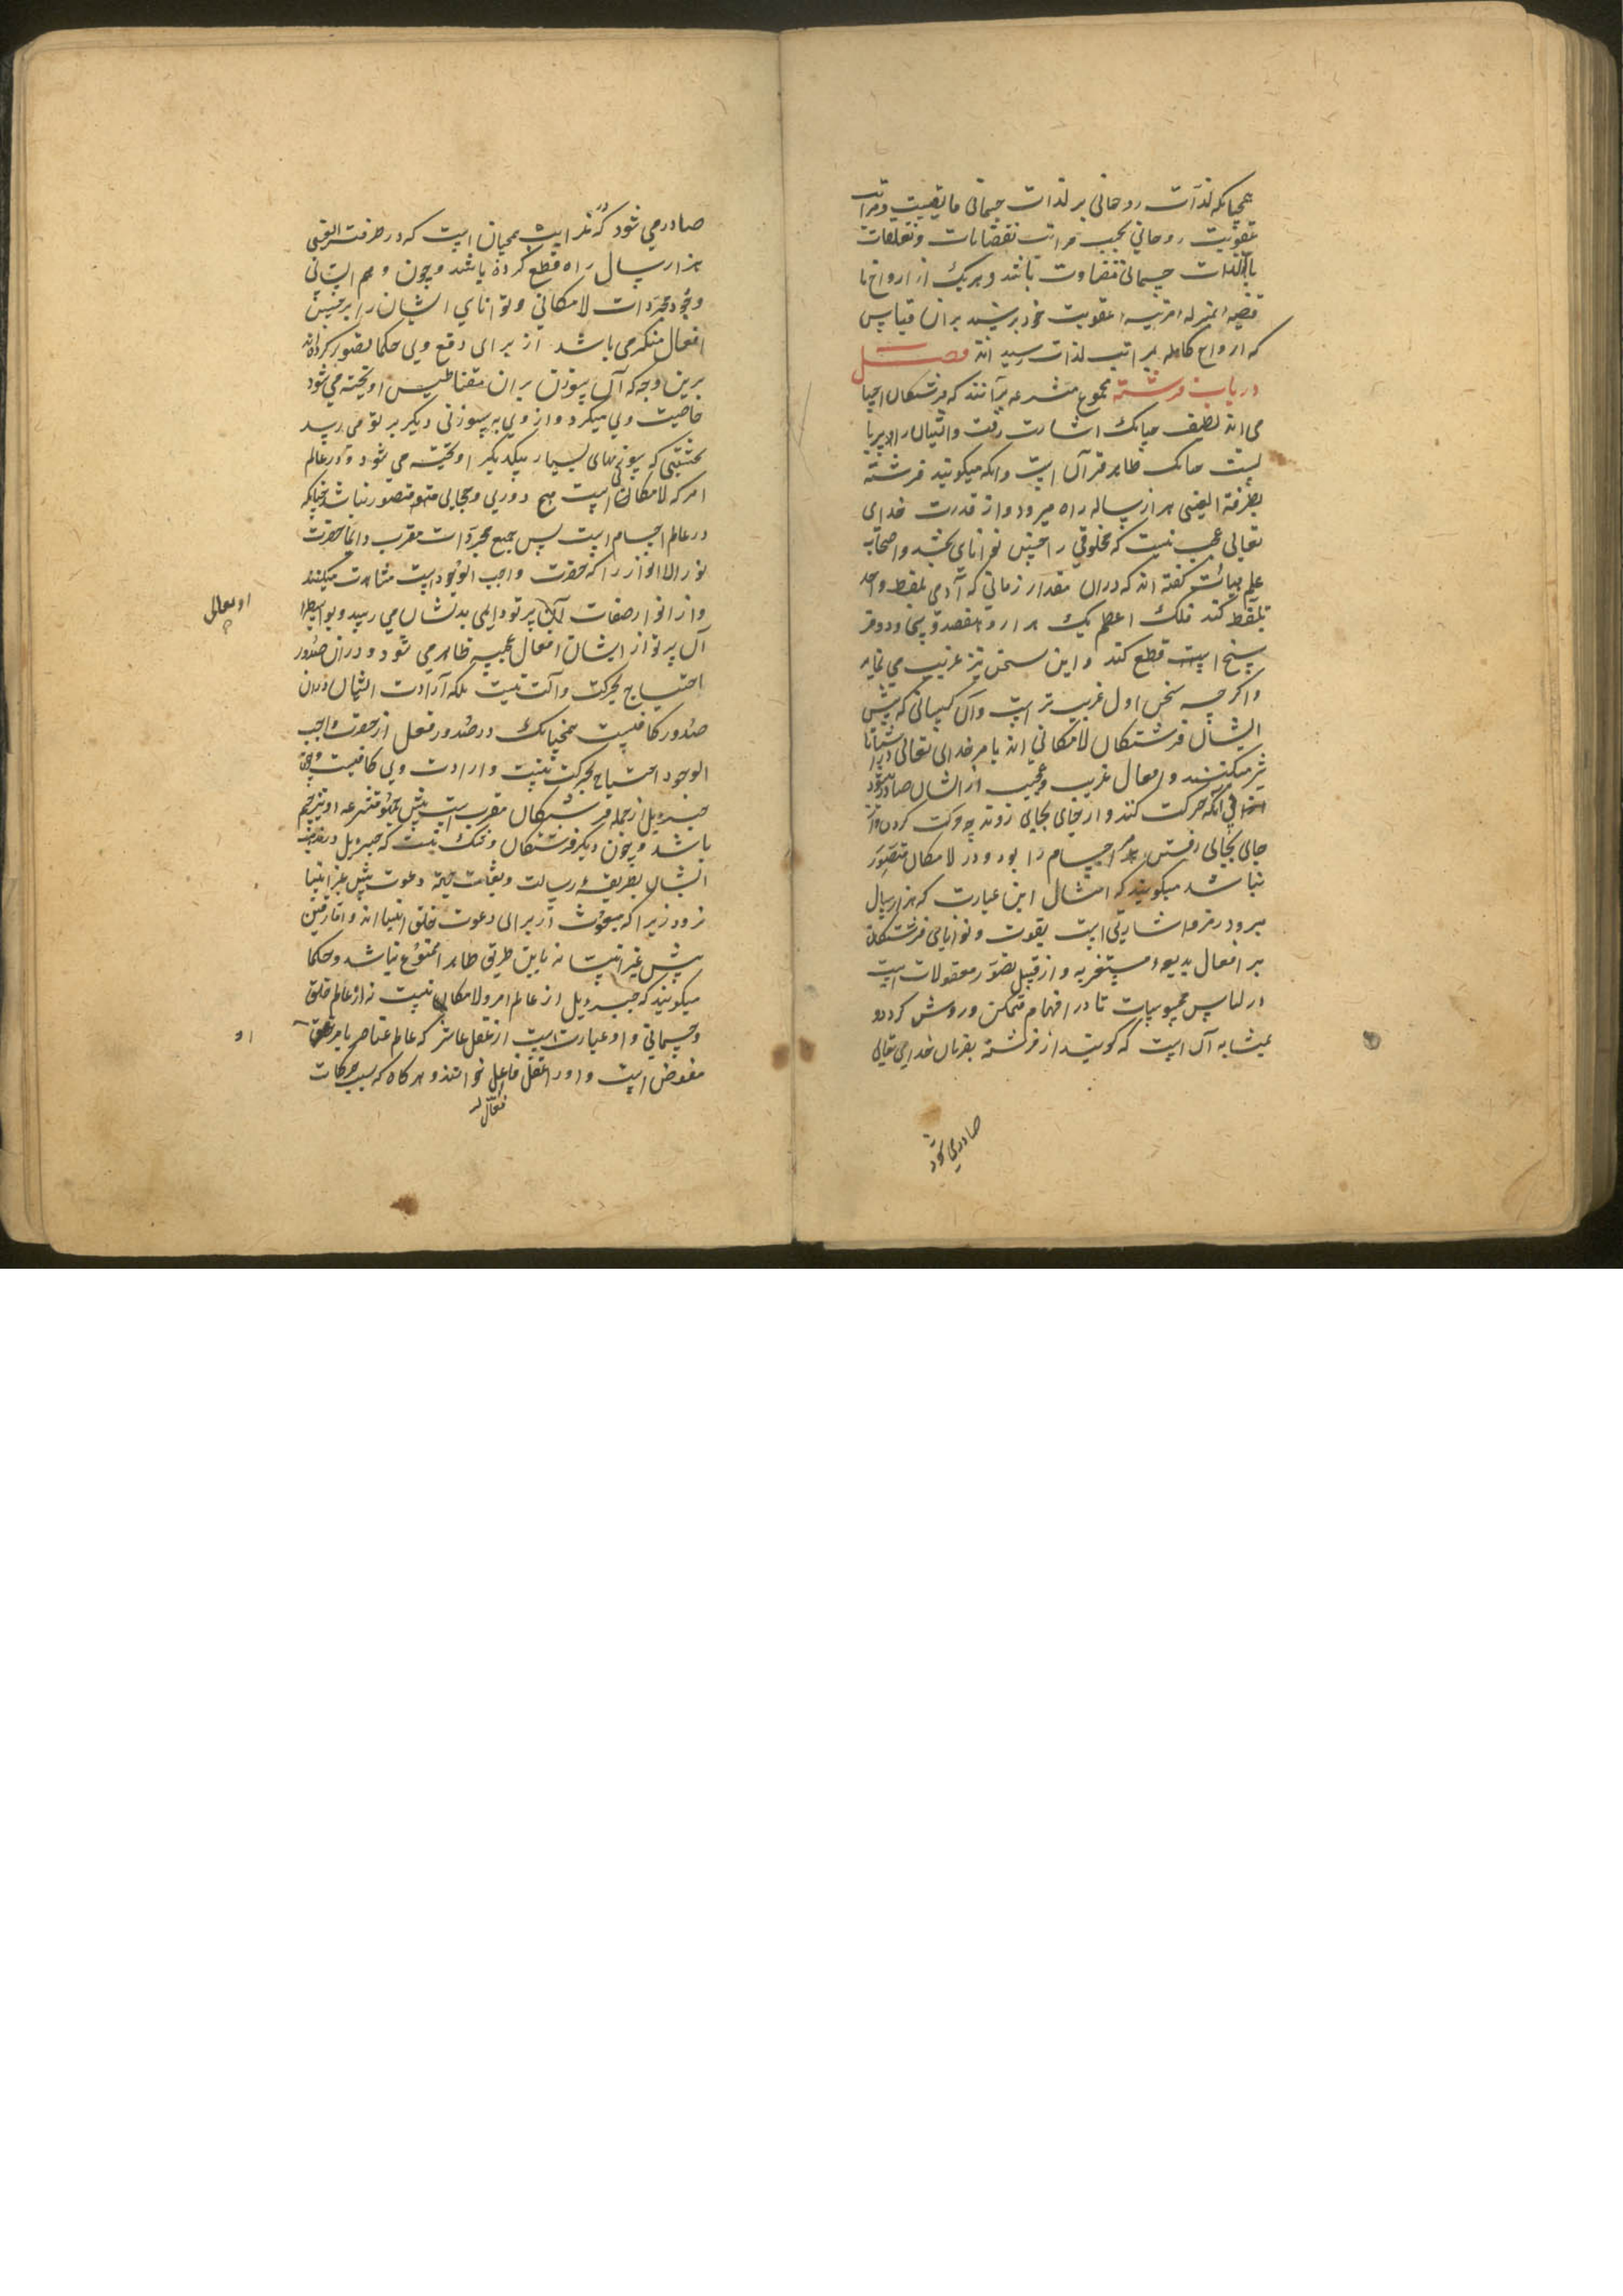 همچنانکه لذات روحانی بر لذات جسمانی فایقست و مراتب
عقوبت روحانی بحسب مراتب نقصانات و تعلقات
بالذات جسمانی متفاوت باشد و هریک از ارواح نا
قصه المنزله مرتبه عقوبت خود برسند بران قیاس
که ارواح کامله بمراتب لذات رسیده اند فصل
در باب فرشته مجموع متشرعه برآنند که فرشتگان اجسا
می اند لطیف چنانک اشارت رفت و ایشان را پرها
ست چنانک ظاهر قرآن است وانکه میکویند فرشته
بطرفة العینی هزار ساله راه میرود از قدرت خدای
تعالی عجب نیست که مخلوقی را چنین توانای بخشد و اصحاب
علم هیأت گفته اند که دران مقدار زمانی که آدمی بلفظ واحد
تلفظ کند فلک اعظم یک هزار و هفصد و سی و دو فر
سنخ است قطع کند و این سخن نیز غریب می نماید
و اکرچه سخن اول غریب تر است وآن کسانی که پیش
ایشان فرشتکان لامکانی اند بامر خدای تعالی در اشیا تا
ثیر میکنند و افعال غریب و عجیب از ایشان صادر میشود
بی آنکه حرکت کنند و از جای بجای روند چه حرکت کردن و از
جای بجای رفتن اجسام را بود و در لامکان متصور
نباشد میکویند که امثال این عبارت که هزار سال
میرود رمز و اشارتی است بقوت و توانایی فرشتکان
بر افعال بدیعه مستغربه و از قبیل تصور معقولات است
در لباس محسوسات تا در افهام متمکن و روشن کردد و
بمثابه آن است که کویند از فرشته بفرمان خدای تعالی
صادر می شود
صادر می شود که نمایش بمچنان است که در طرفت العینی
هزار سال راه قطع کرده باشد و چون وهم انسانی
وجود مجردات لامکانی و توانای ایشان را بر چنین
افعال منکر می باشد از برای دفع وی حکما تصور کرده اند
برین وجه که آن سوزن بران مقناطیس آویخته می شود
خاصیت وی میکیرد و از وی به سوزنی دیکر پرتو می رسد
بحیثیتی که سوزنهای بسیار بیکدیکر آویخته می شود و در عالم
امر که لامکان است هیچ دوری و حجابی متصور نباشد چنانکه
در عالم اجسام است پس جمیع مجردات مقرب دایما حضرت
نور الانوار را که حضرت واجب الوجود است مشاهدت میکنند
و از انوار صفات آن پرتو دایمی بدیشان می رسد و بواسطه
او تعالی
آن پرتو از ایشان افعال عجیبه ظاهر می شود و در ان صدور
احتیاج بحرکت و آلت نیست بلکه ارادت ایشان دران
صدور کافیست همچنانک در صدور فعل از حضرت واجب
الوجود احتیاج بحرکت نیست و ارادت وی کافیست و چون
جبرئیل از جمله فرشتکان مقرب است پیش مجموع متشرعه او نیز جسم
باشد و چون دیکر فرشتکان و شک نیست که جبرئیل در
ایشان بطریقه رسالت و دعوت پیش غیر انبیا
نرود زیرا که مبعوث از برای دعوت خلق انبیا اند و اما رفتن
پیش غیر انبیا نه باین طریق ظاهر ا ممنوع نباشد و حکما
میکویند که جبرئیل از عالم امر و لامکان نیست نه از عالم خلق
و جسمانی و او عبارت است از عقل عاشر که عالم عناصر بامر حق
او
مفوض است و او را عقل فاعل خوانند و هر کاه که بسبب حرکات
فعال